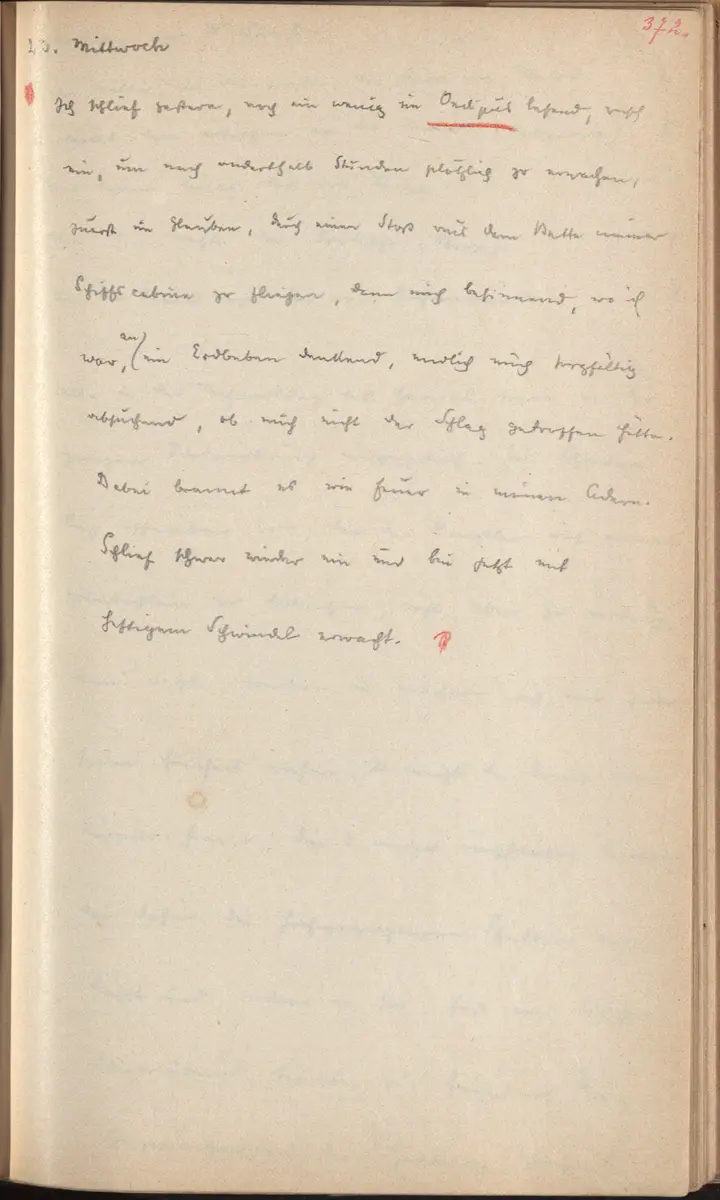 372.
Mittwoch
Ich schlief gestern, noch ein wenig im Oedipus lesend, rasch
ein, um nach anderthalb Stunden plötzlich zu erwachen,
zuerst im Glauben, durch einen Stoß aus dem Bette meiner
Schiffscabine zu fliegen, dann mich besinnend, wo ich
war, an ein Erdbeben denkend, endlich mich sorgfältig
absuchend, ob mich nicht der Schlag getroffen hätte.
Dabei brannte es wie Feuer in meinen Adern.
Schlief schwer wieder ein und bin jetzt mit
heftigem Schwindel erwacht.